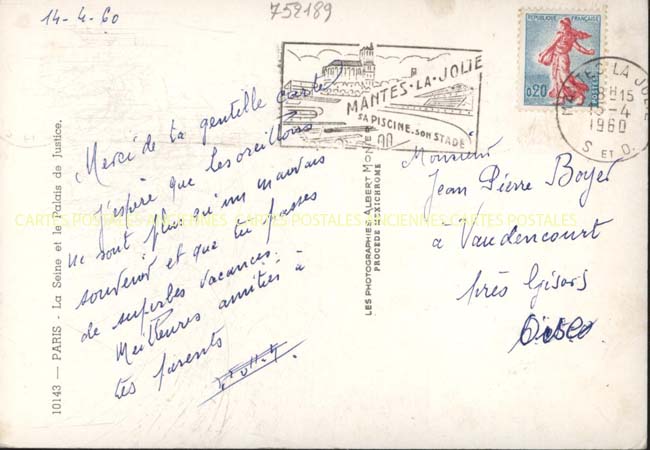 14-4-60
758189
RÉPUBLIQUE FRANÇAISE
0,20
POSTES
MANTES-LA-JOLIE
SA PISCINE. SON STADE
MANTES-LA-JOLIE
H15
-4
1960
S ET O.
Merci de ta gentille carte
J'espère que les oreillons
ne sont plus qu'un mauvais
souvenir et que tu passes
de superbes vacances.
Meilleures amitiés à
tes parents
Monsieur
Jean Pierre Boyer
a Vaudencourt
près Gisors
Oise
10143 — PARIS - La Seine et le Palais de Justice.
LES PHOTOGRAPHIES ALBERT MON
PROCÉDÉ FLEXICHROME
CARTES POSTALES ANCIENNES CARTES POSTALES ANCIENNES CARTES POSTALES